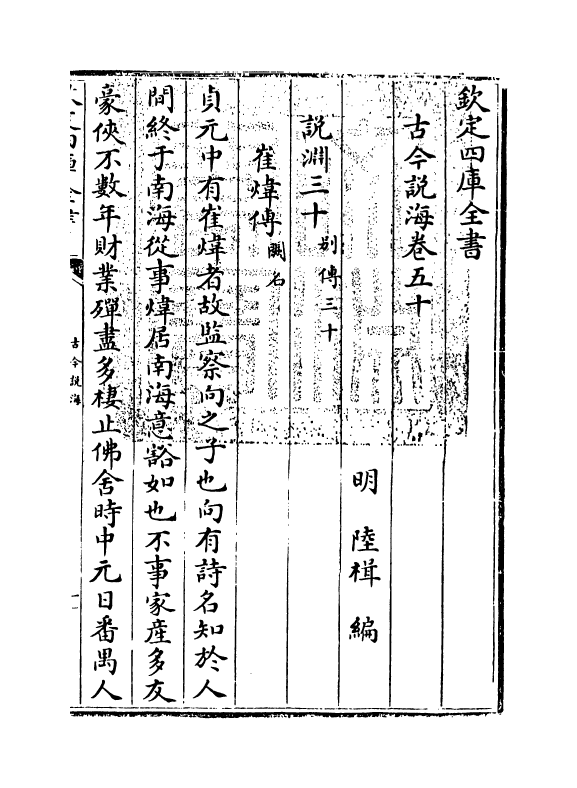 欽定四庫全書
古今說海卷五十
明 陸楫 編
說淵三十 别傳三十
崔煒傳 闕名
貞元中有崔煒者故監察向之子也向有詩名知於人
間終于南海從事煒居南海意豁如也不事家産多友
豪俠不數年財業殫盡多棲止佛舍時中元日番禺人
古今說海